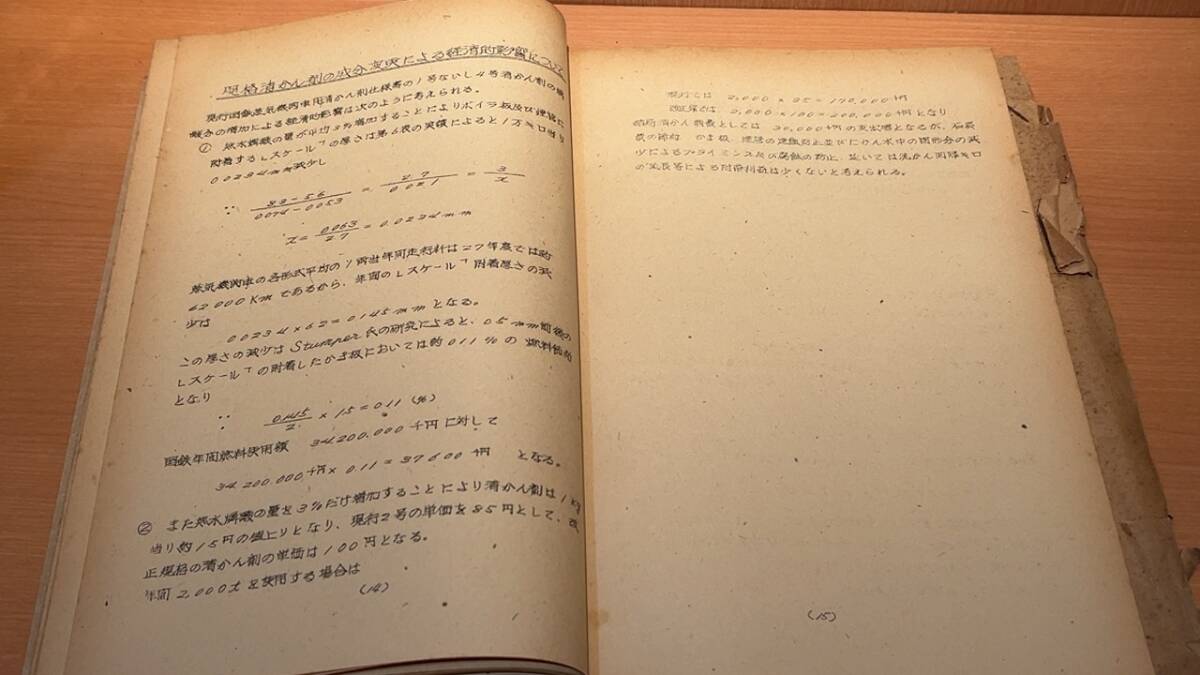 現格清かん剤の成分変更による経済的影響について
現行国鉄蒸気機関車用清かん剤仕様書の1号ないし4号清かん剤の燐
酸分の増加による経済的影響は次のように考えられる。
① 無水燐酸の量が平均3%増加することによりボイラ板及び煙管に
附着する「スケール」の厚さは第6表の実績によると1万キロ当り
0.0234mm減少し
∵ 83-56 / 0.074-0.053 = 2.7 / 0.021 = 3 / x
x = 0.063 / 2.7 = 0.0234mm
蒸気機関車の各形式平均の1両当年間走行粁は27年度では約
62000Kmであるから、年間の「スケール」附着厚さの減
少は
0.0234×6.2=0.145mmとなる。
この厚さの減少はStumper氏の研究によると、0.5mm前後の
「スケール」の附着したかま板においては約0.11%の燃料節約
となり
∵ 0.145 / 2 × 1.5 = 0.11 (%)
国鉄年間燃料使用額 34,200,000千円に対して
34,200,000千円×0.11=37,600千円 となる。
② また無水燐酸の量を3%だけ増加することにより清かん剤は1kg
当り約15円の値上りとなり、現行2号の単価を85円として、改
正規格の清かん剤の単価は100円となる。
年間2,000tを使用する場合は
(14)
現行では 2,000×85=170,000千円
改正後では 2,000×100=200,000千円となり
結局清かん剤費としては30,000千円の支出増となるが、石炭
費の節約、かま板、煙管の過熱防止並びにかん水中の固形分の減
少によるプライミング及び腐蝕の防止、延いては洗かん間隔キロ
の延長等による附帯利益は少くないと考えられる。
(15)